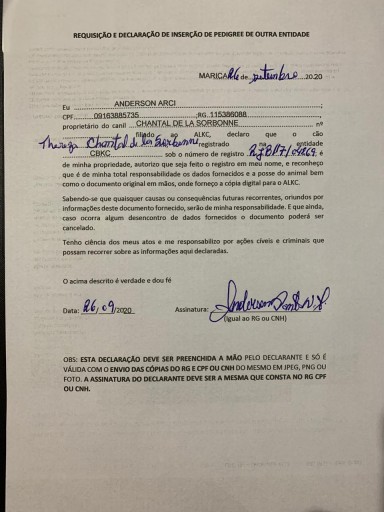 REQUISIÇÃO E DECLARAÇÃO DE INSERÇÃO DE PEDIGREE DE OUTRA ENTIDADE
MARICÁ, 26 de setembro 2020
Eu ANDERSON ARCI
CPF 09163885735 ;RG 115386088
proprietário do canil CHANTAL DE LA SORBONNE nº
filiado ao ALKC, declaro que o cão
Thereza Chantal de la Sorbonne, registrado na entidade
CBKC sob o número de registro é
de minha propriedade, autorizo que seja feito o registro em meu nome, e reconheço
que é de minha total responsabilidade os dados fornecidos e a posse do animal bem
como o documento original em mãos, onde forneço a cópia digital para o ALKC.
Sabendo-se que quaisquer causas ou consequências futuras recorrentes, oriundos por
informações deste documento fornecido, serão de minha responsabilidade. E que ainda,
caso ocorra algum desencontro de dados fornecidos o documento poderá ser
cancelado.
Tenho ciência dos meus atos e me responsabilizo por ações cíveis e criminais que
possam recorrer sobre as informações aqui declaradas.
O acima descrito é verdade e dou fé
Data: 26/09/2020 Assinatura: Anderson
(Igual ao RG ou CNH)
OBS: ESTA DECLARAÇÃO DEVE SER PREENCHIDA A MÃO PELO DECLARANTE E SÓ É
VÁLIDA COM O ENVIO DAS CÓPIAS DO RG E CPF OU CNH DO MESMO EM JPEG, PNG OU
FOTO. A ASSINATURA DO DECLARANTE DEVE SER A MESMA QUE CONSTA NO RG CPF
OU CNH.